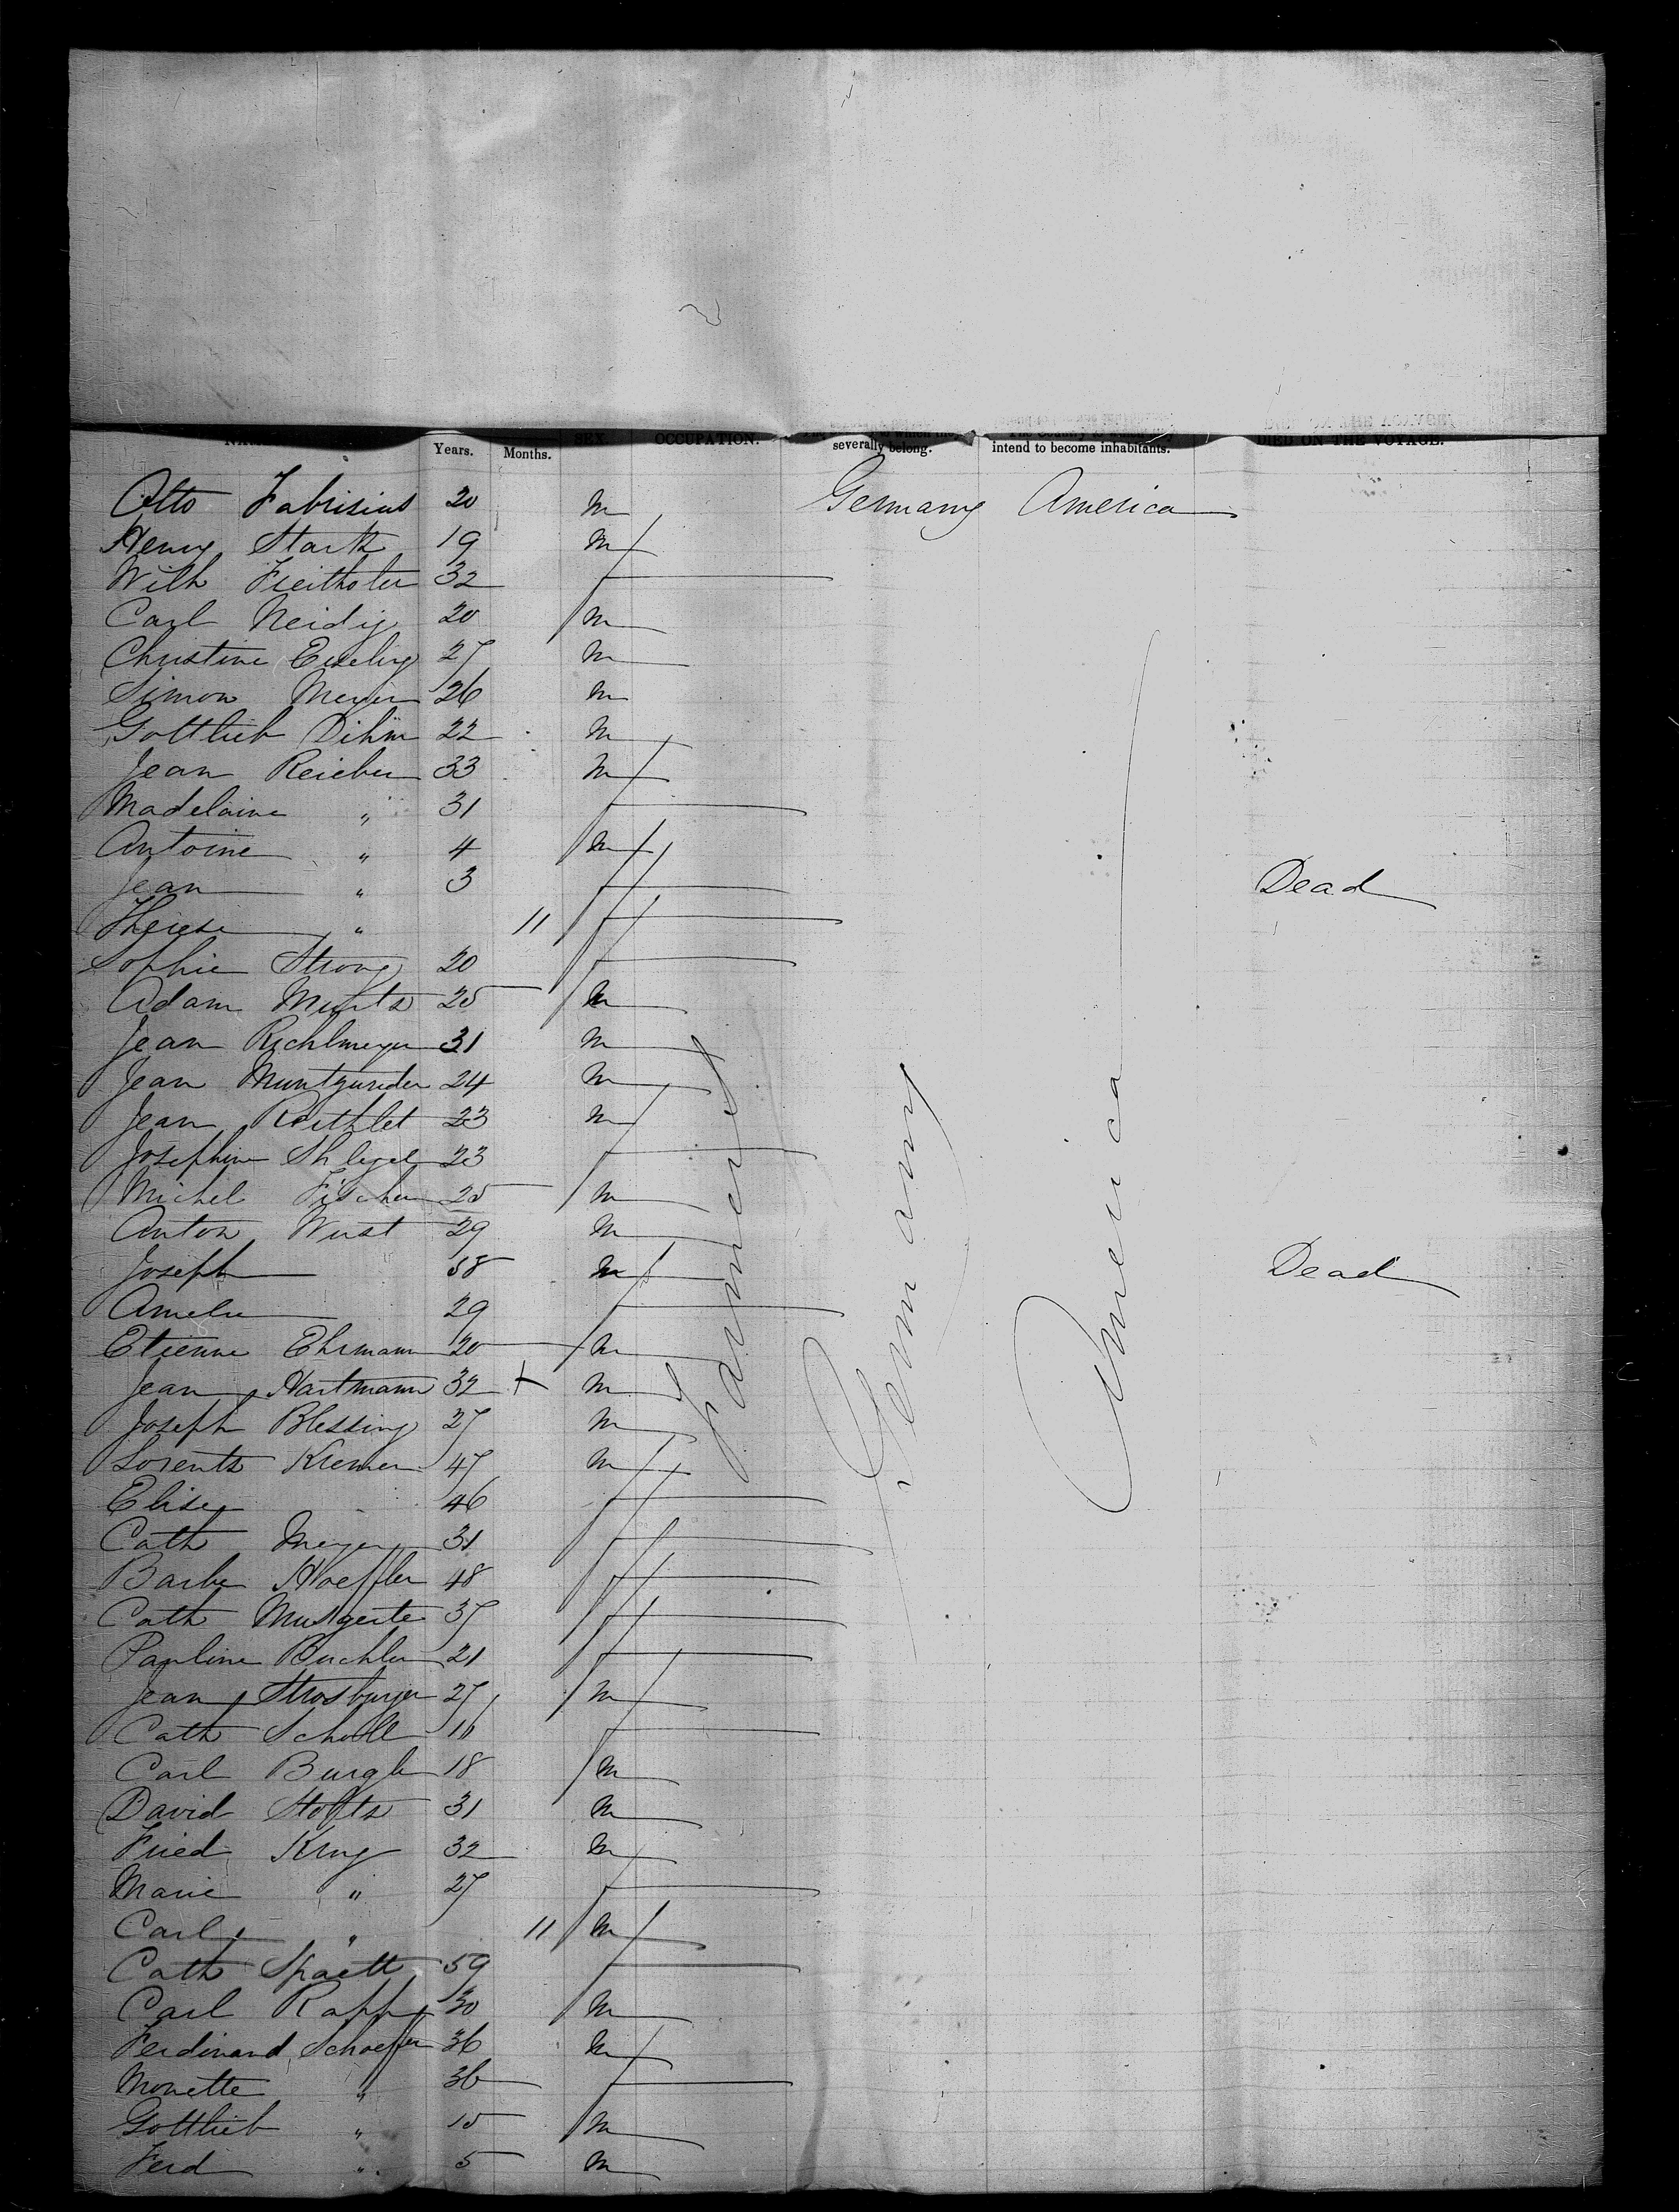 Years. Months. SEX. OCCUPATION. severally belong. intend to become inhabitants. DIED ON THE VOYAGE.
Otto Fabrisius 20 m Germany America
Henry Stark 19 m
Wilh 32 f
Carl Neidig 20 m
Christine 27 m
Simon Meyer 26 m
Gottlieb Dihm 22 m
Jean Reieber 33 m
Madelaine " 31 f
Antoine " 4 m
Jean " 3 f Dead
Therese " 11 f
Sophie Strong 20 f
Adam Munts 25 m
Jean Richlmeyer 31 m
Jean 24 m
Jean Rothlet 23 m
Josephine Shlegel 23 f
Michel Fischer 25 m
Anton Wust 29 m
Joseph 58 m Dead
Amelie 29 f
Etienne Ehrmann 20 m
Jean Hartmann 32 + m
Joseph Blessing 27 m
Lorentz Kremer 47 m
Elise 46 f
Cath Meyer 31 f
Barbe Hoeffler 48 f
Cath 37 f
Pauline Buchler 21 f
Jean Strosburger 27 m
Cath Scholl f
Carl Burgle 18 m
David Stolts 31 m
Fried Krug 32 m
Marie " 27 f
Carl " 11 m
Cath Spaett 59 f
Carl Rapp 30 m
Ferdinand Schoeffer 36 m
Monette " 36 f
Gottlieb " 15 m
Ferd " 5 m
Farmers
Germany
America